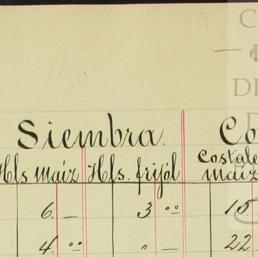 Siembra. Co
Hfs maíz Hfs. frijól Costale
maíz
6. — 3 °° 15
4. °° „ — 22